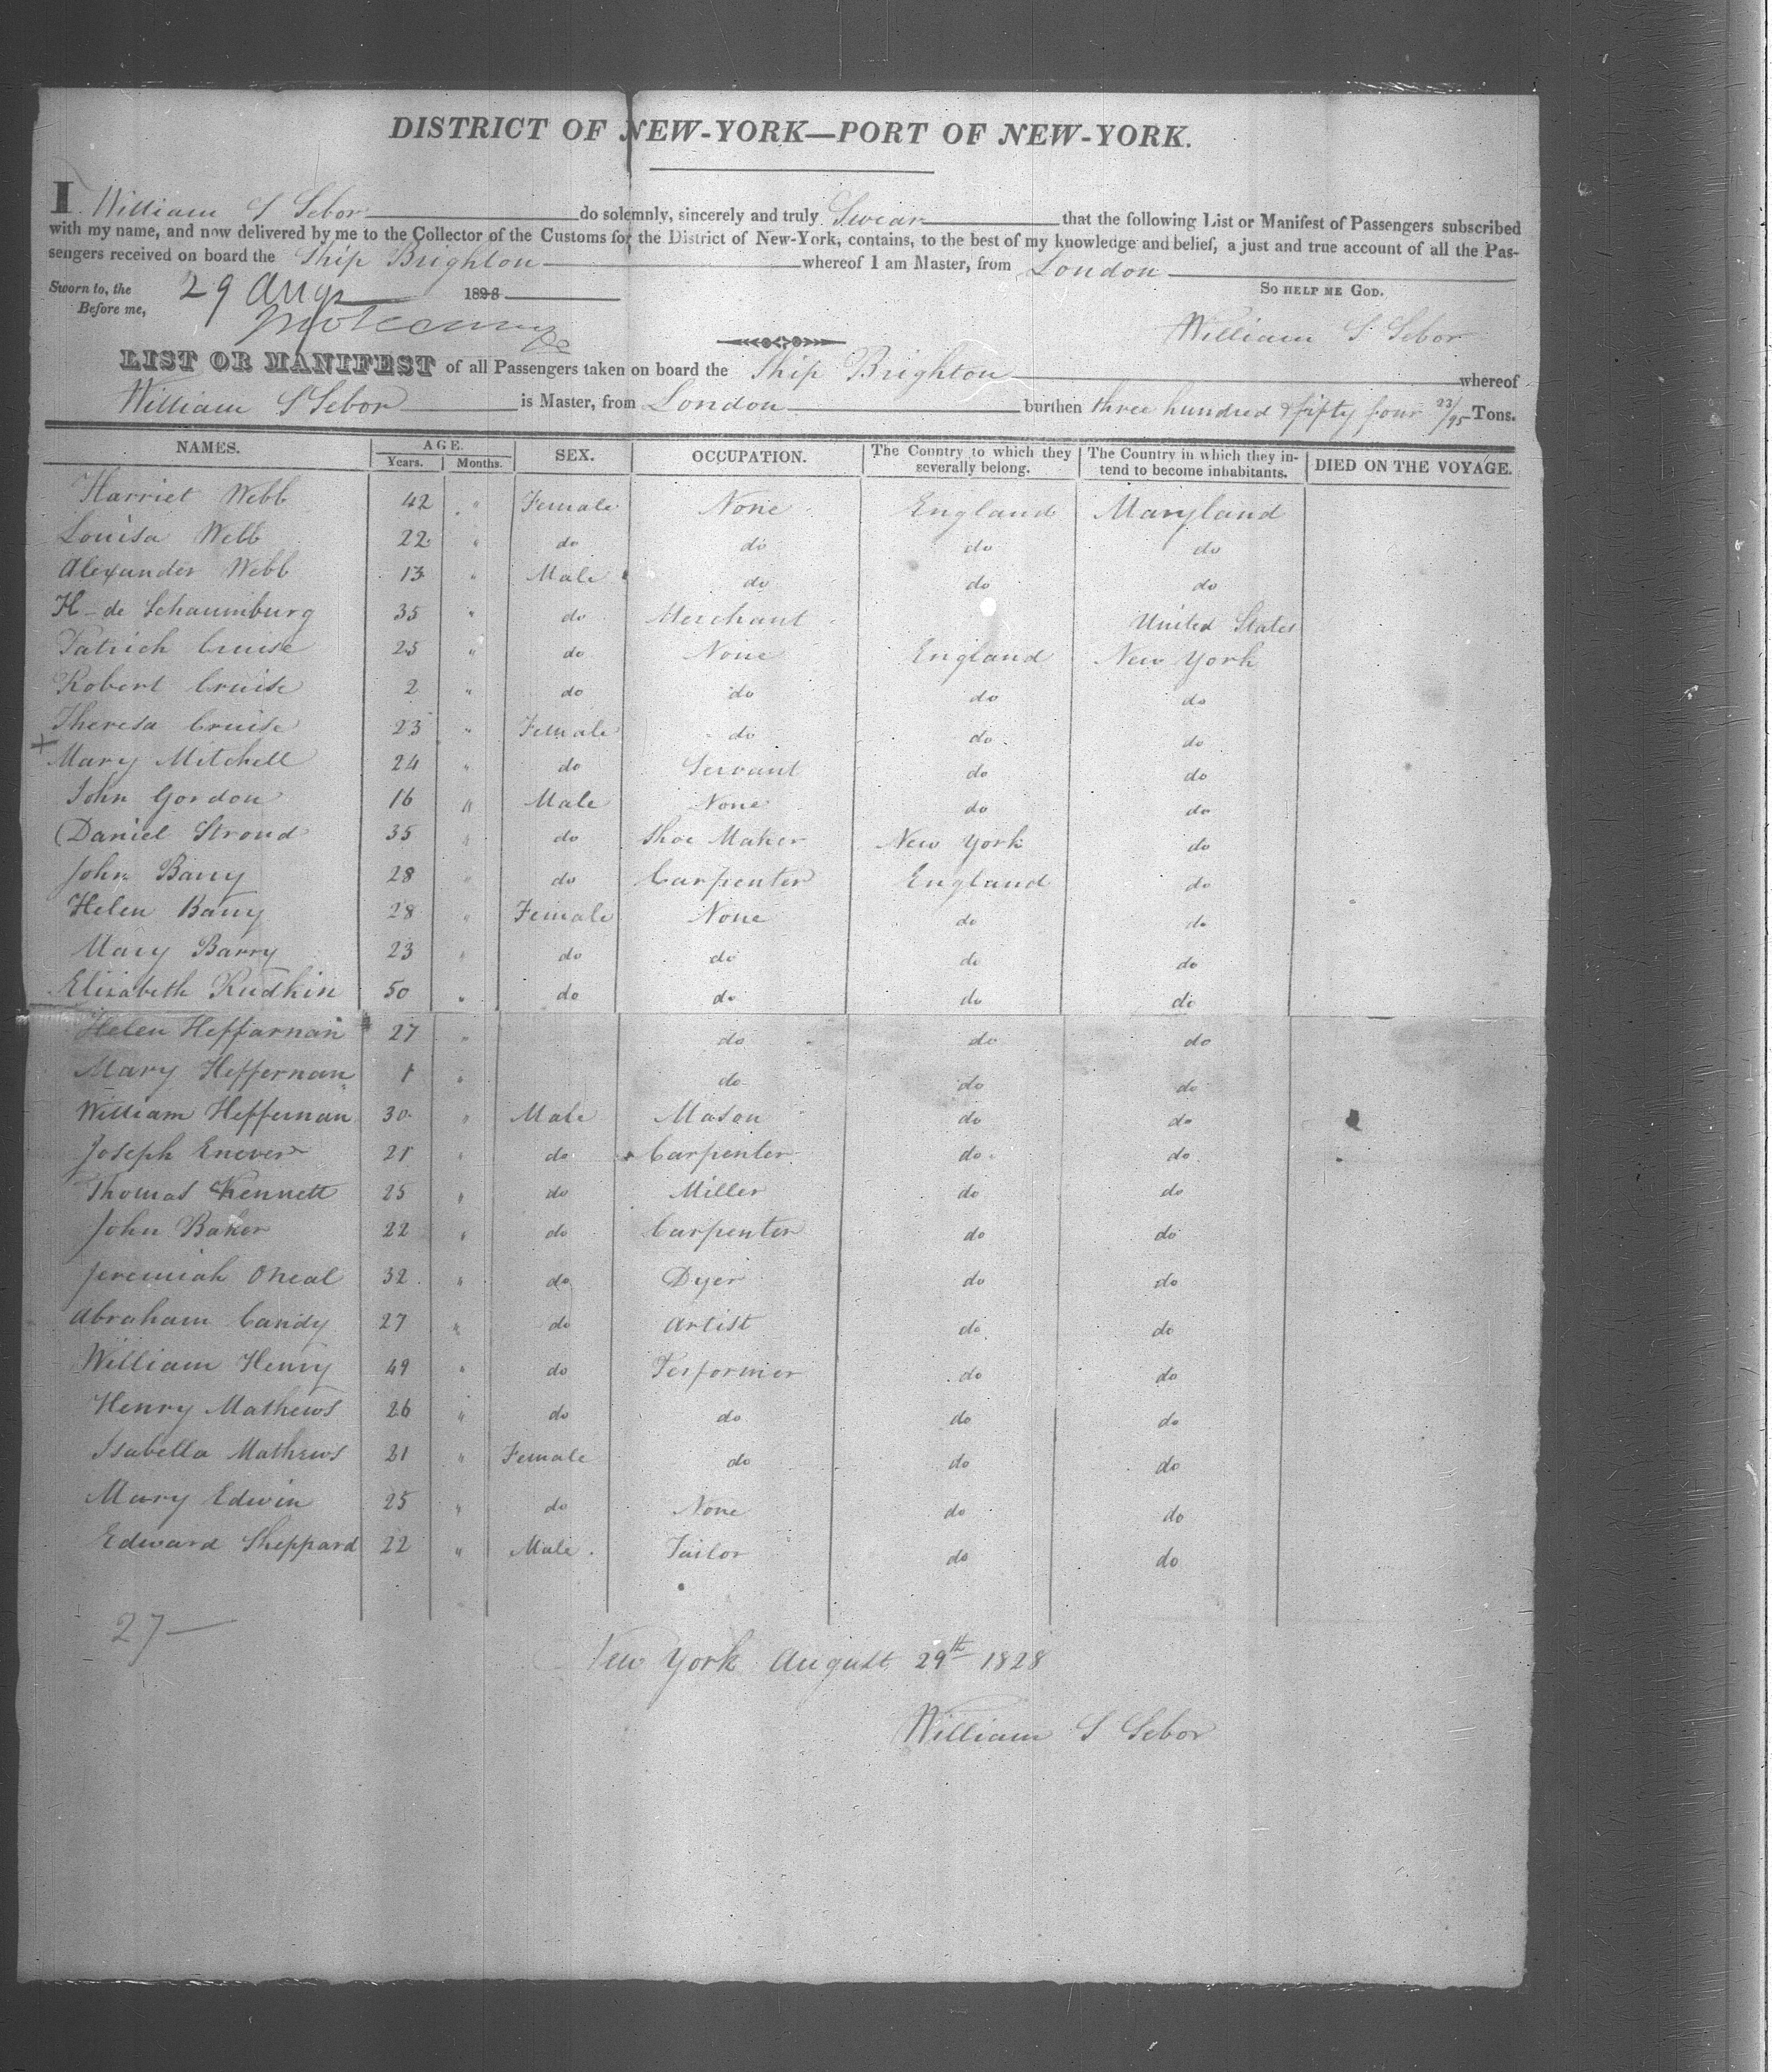 DISTRICT OF NEW-YORK—PORT OF NEW-YORK.
I William S Sebor do solemnly, sincerely and truly Swear that the following List or Manifest of Passengers subscribed
with my name, and now delivered by me to the Collector of the Customs for the District of New-York, contains, to the best of my knowledge and belief, a just and true account of all the Pas-
sengers received on board the Ship Brighton whereof I am Master, from London
Sworn to, the 29 Augt 182 So HELP ME GOD.
Before me,
William S Sebor
LIST OR MANIFEST of all Passengers taken on board the Ship Brighton whereof
William S Sebor is Master, from London burthen three hundred & fifty four 23/95 Tons.
NAMES. AGE. Years. Months. SEX. OCCUPATION. The Country to which they severally belong. The Country in which they in-tend to become inhabitants. DIED ON THE VOYAGE.
Harriet Webb 42 " Female None England Maryland
Louisa Webb 22 " do do do do
Alexander Webb 13 " Male do do do
H de Schaumburg 35 " do Merchant United States
Patrick Cruise 25 " do None England New York
Robert Cruise 2 " do do do do
Theresa Cruise 23 " Female do do do
+ Mary Mitchell 24 " do Servant do do
John Gordon 16 " Male None do do
Daniel Stroud 35 " do Shoe Maker New York do
John Barry 28 " do Carpenter England do
Helen Barry 28 " Female None do do
Mary Barry 23 " do do do do
Elizabeth Rudkin 50 " do do do do
Helen Heffarnan 27 " do do do
Mary Heffernan 1 " do do do
William Heffernan 30 " Male Mason do do
Joseph Enever 21 " do Carpenter do do
Thomas Kennett 25 " do Miller do do
John Baker 22 " do Carpenter do do
Jeremiah Oneal 32 " do Dyer do do
Abraham Candy 27 " do Artist do do
William Henry 49 " do Performer do do
Henry Mathews 26 " do do do do
Isabella Mathews 21 " Female do do do
Mary Edwin 25 " do None do do
Edward Sheppard 22 " Male Tailor do do
27—
New York August 29th 1828
William S Sebor